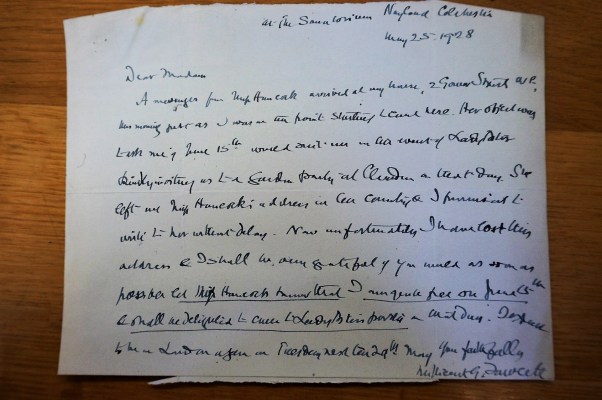 at The Sanatorium Nayland Colchester
May 25. 1928
Dear Madam
A messenger from Miss Hancock arrived at my house, 2 Gower Street W.C.
this morning just as I was on the point of starting to come here. Her object was
to ask me if June 15th would suit me in the event of Lady Astor
kindly inviting us to a Garden party at Cliveden on that day. She
left me Miss Hancock's address in her county & I promised to
write to her without delay. Now unfortunately I have lost this
address & I shall be very grateful if you would as soon as
possible let Miss Hancock know that I am quite free on June 15th
& shall be delighted to come to Lady Astor's party on that day. I expect
to be in London again on Tuesday next the 29th May Yours faithfully
Millicent G. Fawcett